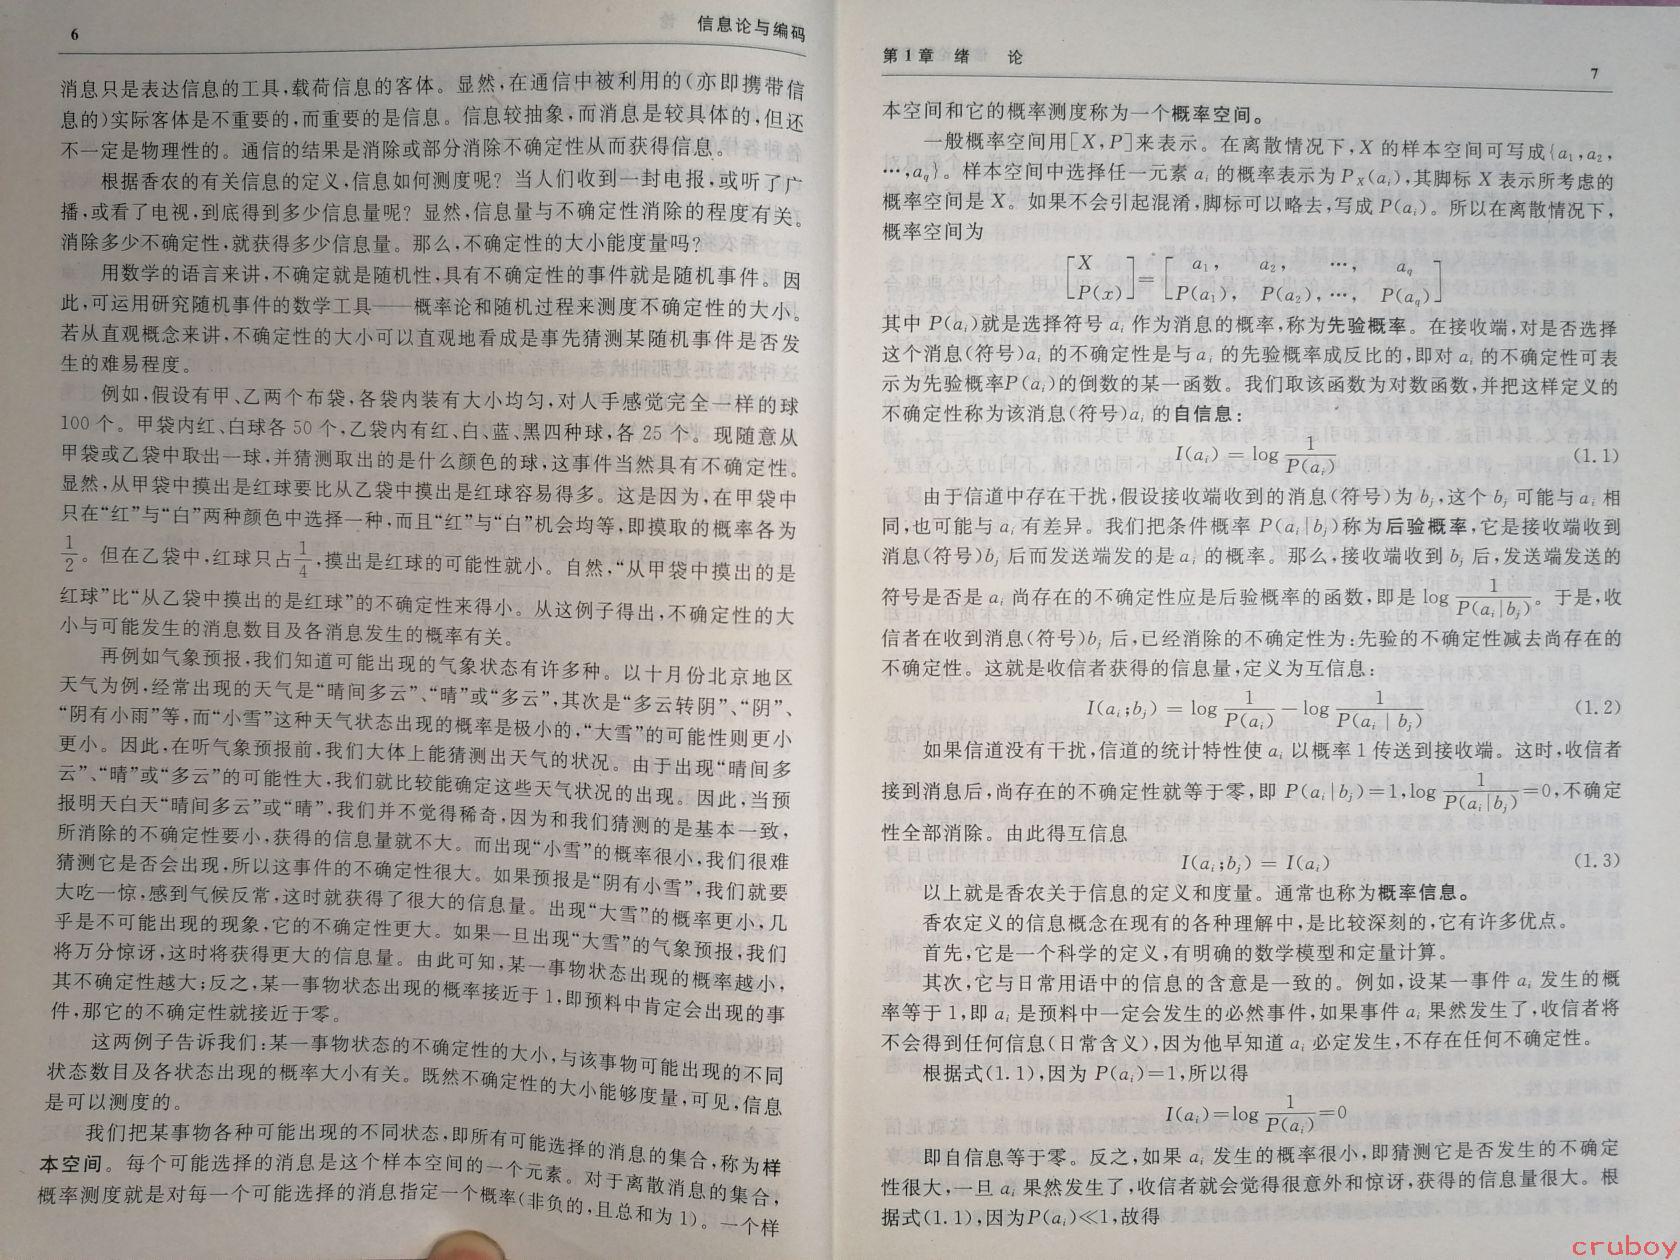 6 信息论与编码
消息只是表达信息的工具,载荷信息的客体。显然,在通信中被利用的(亦即携带信
息的)实际客体是不重要的,而重要的是信息。信息较抽象,而消息是较具体的,但还
不一定是物理性的。通信的结果是消除或部分消除不确定性从而获得信息。
根据香农的有关信息的定义,信息如何测度呢?当人们收到一封电报,或听了广
播,或看了电视,到底得到多少信息量呢?显然,信息量与不确定性消除的程度有关。
消除多少不确定性,就获得多少信息量。那么,不确定性的大小能度量吗?
用数学的语言来讲,不确定就是随机性,具有不确定性的事件就是随机事件。因
此,可运用研究随机事件的数学工具——概率论和随机过程来测度不确定性的大小。
若从直观概念来讲,不确定性的大小可以直观地看成是事先猜测某随机事件是否发
生的难易程度。
例如,假设有甲、乙两个布袋,各袋内装有大小均匀,对人手感觉完全一样的球
100个。甲袋内红、白球各50个,乙袋内有红、白、蓝、黑四种球,各25个。现随意从
甲袋或乙袋中取出一球,并猜测取出的是什么颜色的球,这事件当然具有不确定性。
显然,从甲袋中摸出是红球要比从乙袋中摸出是红球容易得多。这是因为,在甲袋中
只在“红”与“白”两种颜色中选择一种,而且“红”与“白”机会均等,即摸取的概率各为
1/2。但在乙袋中,红球只占1/4,摸出是红球的可能性就小。自然,“从甲袋中摸出的是
红球”比“从乙袋中摸出的是红球”的不确定性来得小。从这例子得出,不确定性的大
小与可能发生的消息数目及各消息发生的概率有关。
再例如气象预报,我们知道可能出现的气象状态有许多种。以十月份北京地区
天气为例,经常出现的天气是“晴间多云”、“晴”或“多云”,其次是“多云转阴”、“阴”、
“阴有小雨”等,而“小雪”这种天气状态出现的概率是极小的,“大雪”的可能性则更小
更小。因此,在听气象预报前,我们大体上能猜测出天气的状况。由于出现“晴间多
云”、“晴”或“多云”的可能性大,我们就比较能确定这些天气状况的出现。因此,当预
报明天白天“晴间多云”或“晴”,我们并不觉得稀奇,因为和我们猜测的是基本一致,
所消除的不确定性要小,获得的信息量就不大。而出现“小雪”的概率很小,我们很难
猜测它是否会出现,所以这事件的不确定性很大。如果预报是“阴有小雪”,我们就要
大吃一惊,感到气候反常,这时就获得了很大的信息量。出现“大雪”的概率更小,几
乎是不可能出现的现象,它的不确定性更大。如果一旦出现“大雪”的气象预报,我们
将万分惊讶,这时将获得更大的信息量。由此可知,某一事物状态出现的概率越小,
其不确定性越大;反之,某一事物状态出现的概率接近于1,即预料中肯定会出现的事
件,那它的不确定性就接近于零。
这两例子告诉我们:某一事物状态的不确定性的大小,与该事物可能出现的不同
状态数目及各状态出现的概率大小有关。既然不确定性的大小能够度量,可见,信息
是可以测度的。
我们把某事物各种可能出现的不同状态,即所有可能选择的消息的集合,称为样
本空间。每个可能选择的消息是这个样本空间的一个元素。对于离散消息的集合,
概率测度就是对每一个可能选择的消息指定一个概率(非负的,且总和为1)。一个样
第1章 绪 论 7
本空间和它的概率测度称为一个概率空间。
一般概率空间用[X,P]来表示。在离散情况下,X的样本空间可写成{a₁,a₂,
…,a_q}。样本空间中选择任一元素a_i的概率表示为P_X(a_i),其脚标X表示所考虑的
概率空间是X。如果不会引起混淆,脚标可以略去,写成P(a_i)。所以在离散情况下,
概率空间为
[X]=[a₁, a₂, …, a_q]
[P(x)] [P(a₁), P(a₂),…, P(a_q)]
其中P(a_i)就是选择符号a_i作为消息的概率,称为先验概率。在接收端,对是否选择
这个消息(符号)a_i的不确定性是与a_i的先验概率成反比的,即对a_i的不确定性可表
示为先验概率P(a_i)的倒数的某一函数。我们取该函数为对数函数,并把这样定义的
不确定性称为该消息(符号)a_i的自信息:
I(a_i) = log 1/P(a_i) (1.1)
由于信道中存在干扰,假设接收端收到的消息(符号)为b_j,这个b_j可能与a_i相
同,也可能与a_i有差异。我们把条件概率P(a_i|b_j)称为后验概率,它是接收端收到
消息(符号)b_j后而发送端发的是a_i的概率。那么,接收端收到b_j后,发送端发送的
符号是否是a_i尚存在的不确定性应是后验概率的函数,即是log 1/P(a_i|b_j)。于是,收
信者在收到消息(符号)b_j后,已经消除的不确定性为:先验的不确定性减去尚存在的
不确定性。这就是收信者获得的信息量,定义为互信息:
I(a_i;b_j) = log 1/P(a_i) − log 1/P(a_i|b_j) (1.2)
如果信道没有干扰,信道的统计特性使a_i以概率1传送到接收端。这时,收信者
接到消息后,尚存在的不确定性就等于零,即P(a_i|b_j)=1,log 1/P(a_i|b_j)=0,不确定
性全部消除。由此得互信息
I(a_i;b_j) = I(a_i) (1.3)
以上就是香农关于信息的定义和度量。通常也称为概率信息。
香农定义的信息概念在现有的各种理解中,是比较深刻的,它有许多优点。
首先,它是一个科学的定义,有明确的数学模型和定量计算。
其次,它与日常用语中的信息的含意是一致的。例如,设某一事件a_i发生的概
率等于1,即a_i是预料中一定会发生的必然事件,如果事件a_i果然发生了,收信者将
不会得到任何信息(日常含义),因为他早知道a_i必定发生,不存在任何不确定性。
根据式(1.1),因为P(a_i)=1,所以得
I(a_i)=log 1/P(a_i)=0
即自信息等于零。反之,如果a_i发生的概率很小,即猜测它是否发生的不确定
性很大,一旦a_i果然发生了,收信者就会觉得很意外和惊讶,获得的信息量很大。根
据式(1.1),因为P(a_i)≪1,故得
cruboy